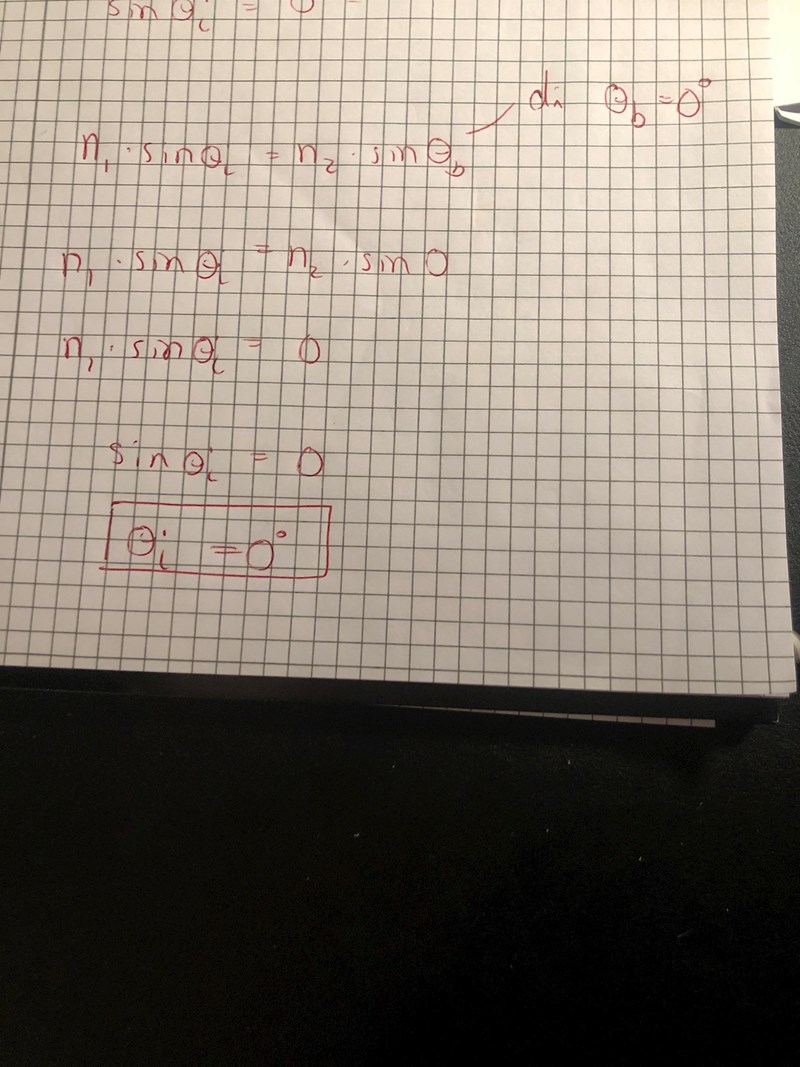 sin θi = 0
då θb = 0°
n₁ · sin θi = n₂ · sin θb
n₁ · sin θi = n₂ · sin 0
n₁ · sin θi = 0
sin θi = 0
θi = 0°